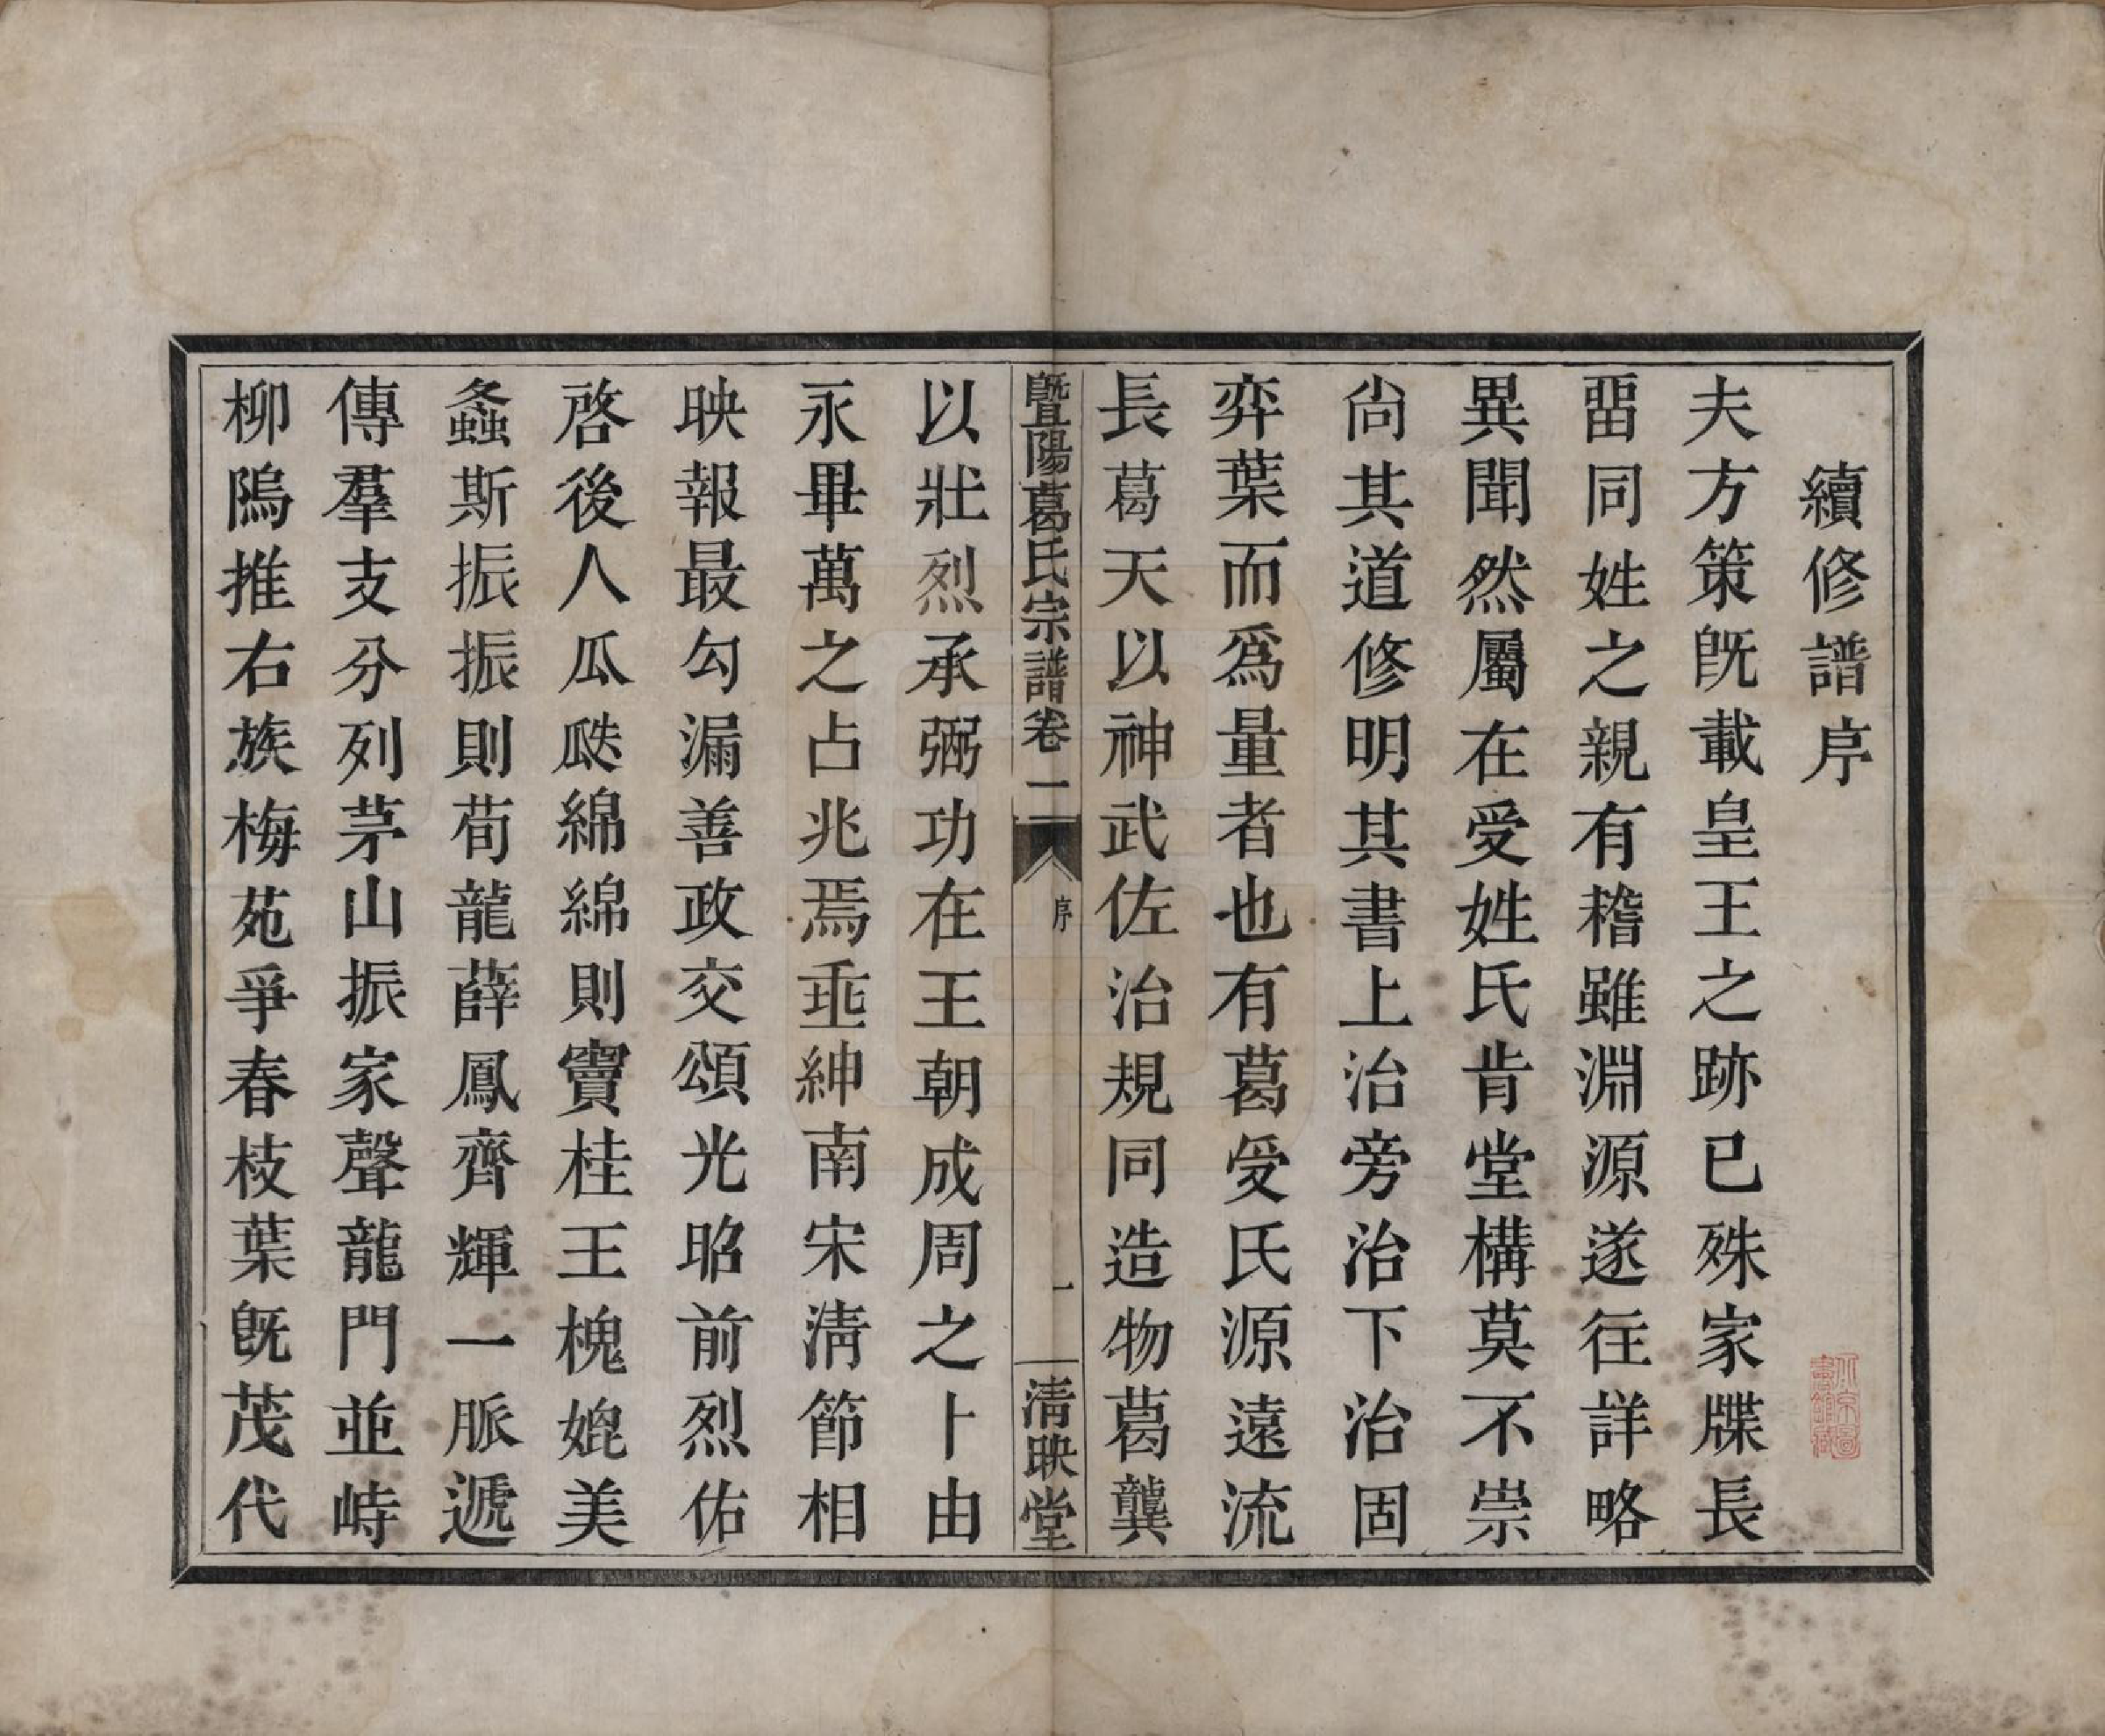 續修譜序
夫方策旣載皇王之跡已殊家牒長
畱同姓之親有稽雖淵源遂徃詳略
異聞然屬在受姓氏肯堂構莫不崇
尙其道修明其書上治旁治下治固
弈葉而爲量者也有葛受氏源遠流
長葛天以神武佐治規同造物葛龔
暨陽葛氏宗譜卷一
序
一
清映堂
以壯烈承弼功在王朝成周之卜由
永畢萬之占兆焉垂紳南宋淸節相
映報最勾漏善政交頌光昭前烈佑
啓後人瓜瓞綿綿則竇桂王槐媲美
螽斯振振則荀龍薛鳳齊輝一脈遞
傳羣支分列茅山振家聲龍門並峙
柳隖推右族梅苑爭春枝葉旣茂代